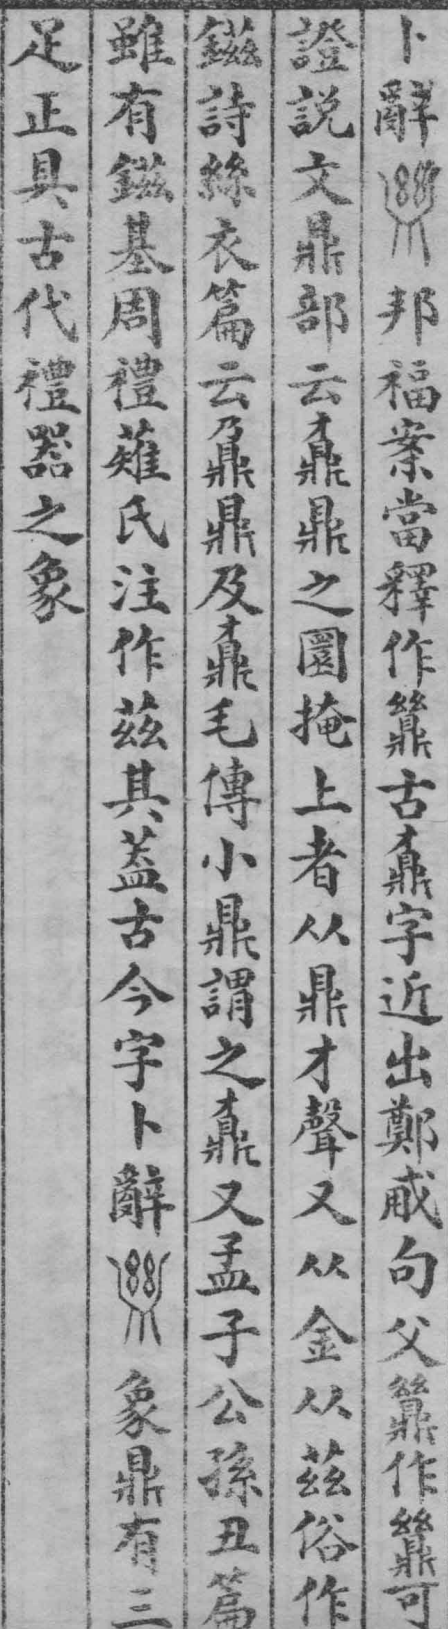 卜辭邦福案當釋作𪔉古鼒字近出鄭戒句父𪔉作𪔉可
證説文鼎部云鼒鼎之圜掩上者从鼎才聲又从金从茲俗作
鎡詩絲衣篇云鼐鼎及鼒毛傳小鼎謂之鼒又孟子公孫丑篇
雖有鎡基周禮薙氏注作茲其葢古今字卜辭象鼎有三
足正具古代禮器之象